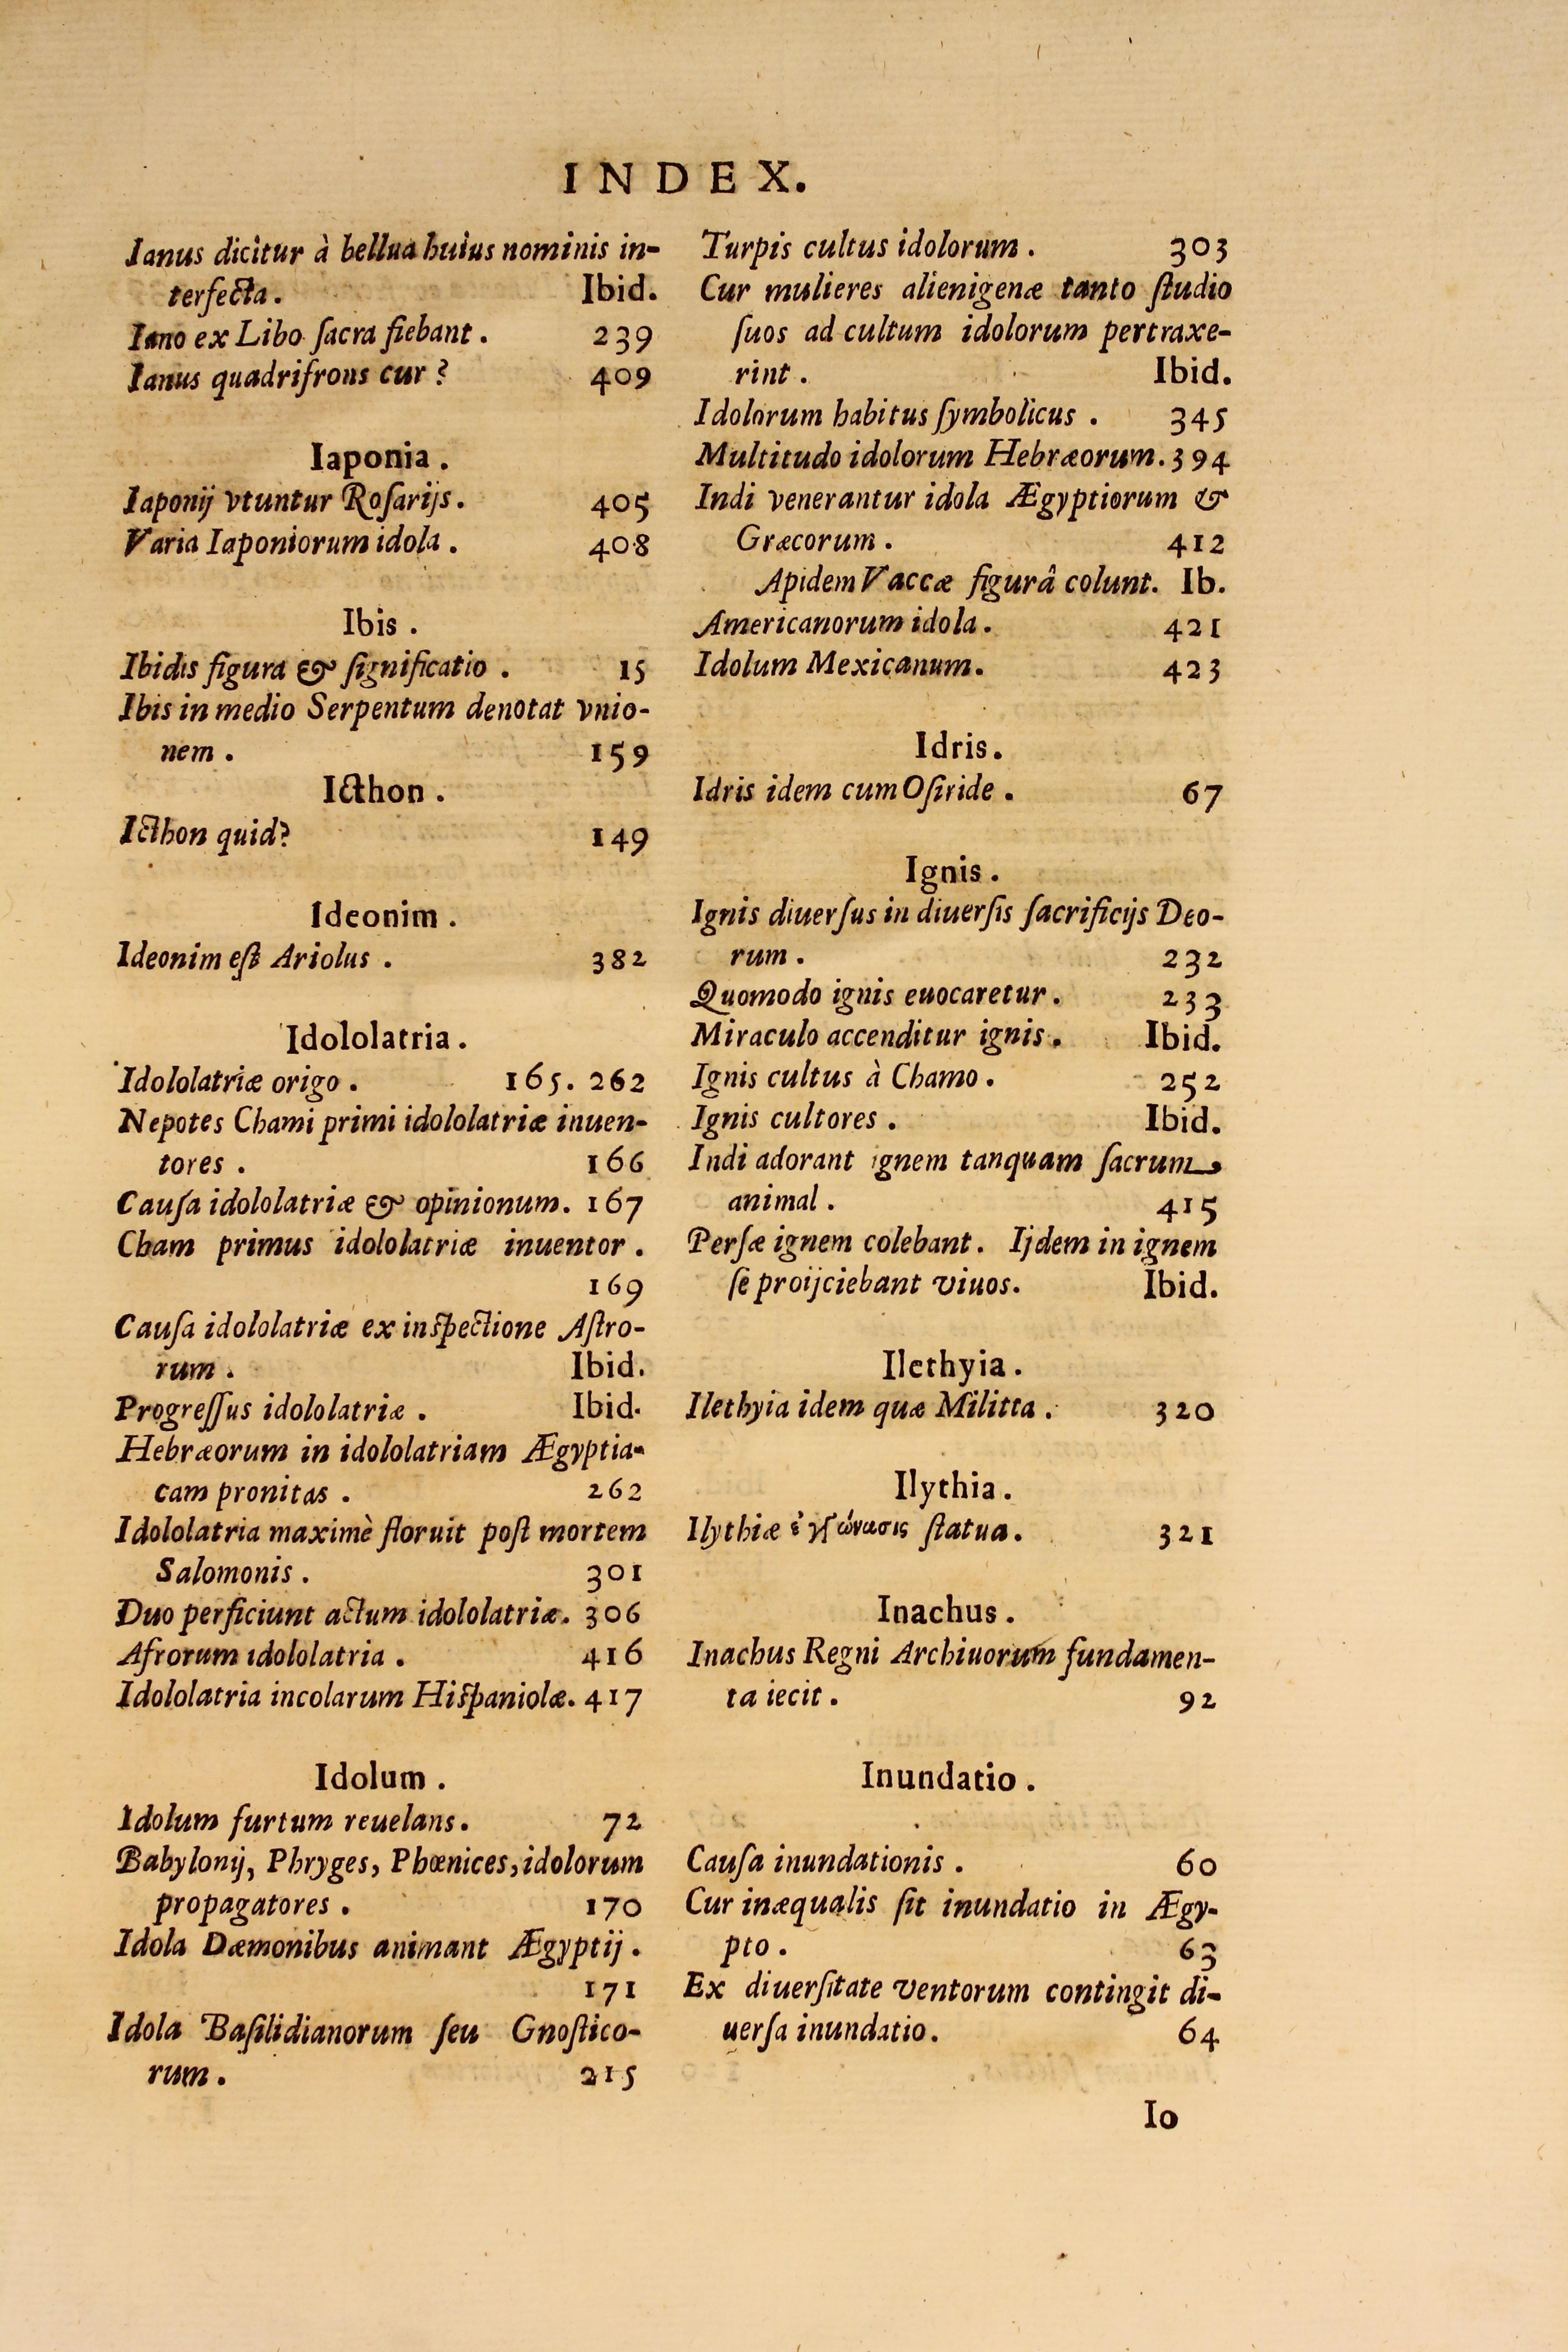 INDEX.
Ianus dicitur à bellua huius nominis in-
terfecta. Ibid.
Iano ex Libo ſacra fiebant. 239
Ianus quadrifrons cur? 409
Iaponia.
Iaponij vtuntur Roſarijs. 405
Varia Iaponiorum idola. 408
Ibis.
Ibidis figura & ſignificatio. 15
Ibis in medio Serpentum denotat vnio-
nem. 159
Icthon.
Icthon quid? 149
Ideonim.
Ideonim eſt Ariolus. 382
Idololatria.
Idololatriæ origo. 165. 262
Nepotes Chami primi idololatriæ inuen-
tores. 166
Cauſa idololatriæ & opinionum. 167
Cham primus idololatriæ inuentor.
169
Cauſa idololatriæ ex inſpectione Aſtro-
rum. Ibid.
Progreſſus idololatriæ. Ibid.
Hebræorum in idololatriam Ægyptia-
cam pronitas. 262
Idololatria maximè floruit poſt mortem
Salomonis. 301
Duo perficiunt actum idololatriæ. 306
Afrorum idololatria. 416
Idololatria incolarum Hiſpaniolæ. 417
Idolum.
Idolum furtum reuelans. 72
Babylonij, Phryges, Phœnices, idolorum
propagatores. 170
Idola Dæmonibus animant Ægyptij.
171
Idola Baſilidianorum ſeu Gnoſtico-
rum. 215
Turpis cultus idolorum. 303
Cur mulieres alienigenæ tanto ſtudio
ſuos ad cultum idolorum pertraxe-
rint. Ibid.
Idolorum habitus ſymbolicus. 345
Multitudo idolorum Hebræorum. 394
Indi venerantur idola Ægyptiorum &
Græcorum. 412
Apidem Vaccæ figurâ colunt. Ib.
Americanorum idola. 421
Idolum Mexicanum. 423
Idris.
Idris idem cum Oſiride. 67
Ignis.
Ignis diuerſus in diuerſis ſacrificijs Deo-
rum. 232
Quomodo ignis euocaretur. 233
Miraculo accenditur ignis. Ibid.
Ignis cultus à Chamo. 252
Ignis cultores. Ibid.
Indi adorant ignem tanquam ſacrum
animal. 415
Perſæ ignem colebant. Ijdem in ignem
ſe proijciebant viuos. Ibid.
Ilethyia.
Ilethyia idem quæ Militta. 320
Ilythia.
Ilythiæ ſtatua. 321
Inachus.
Inachus Regni Archiuorum fundamen-
ta iecit. 92
Inundatio.
Cauſa inundationis. 60
Cur inæqualis ſit inundatio in Ægy-
pto. 63
Ex diuerſitate ventorum contingit di-
uerſa inundatio. 64
Io